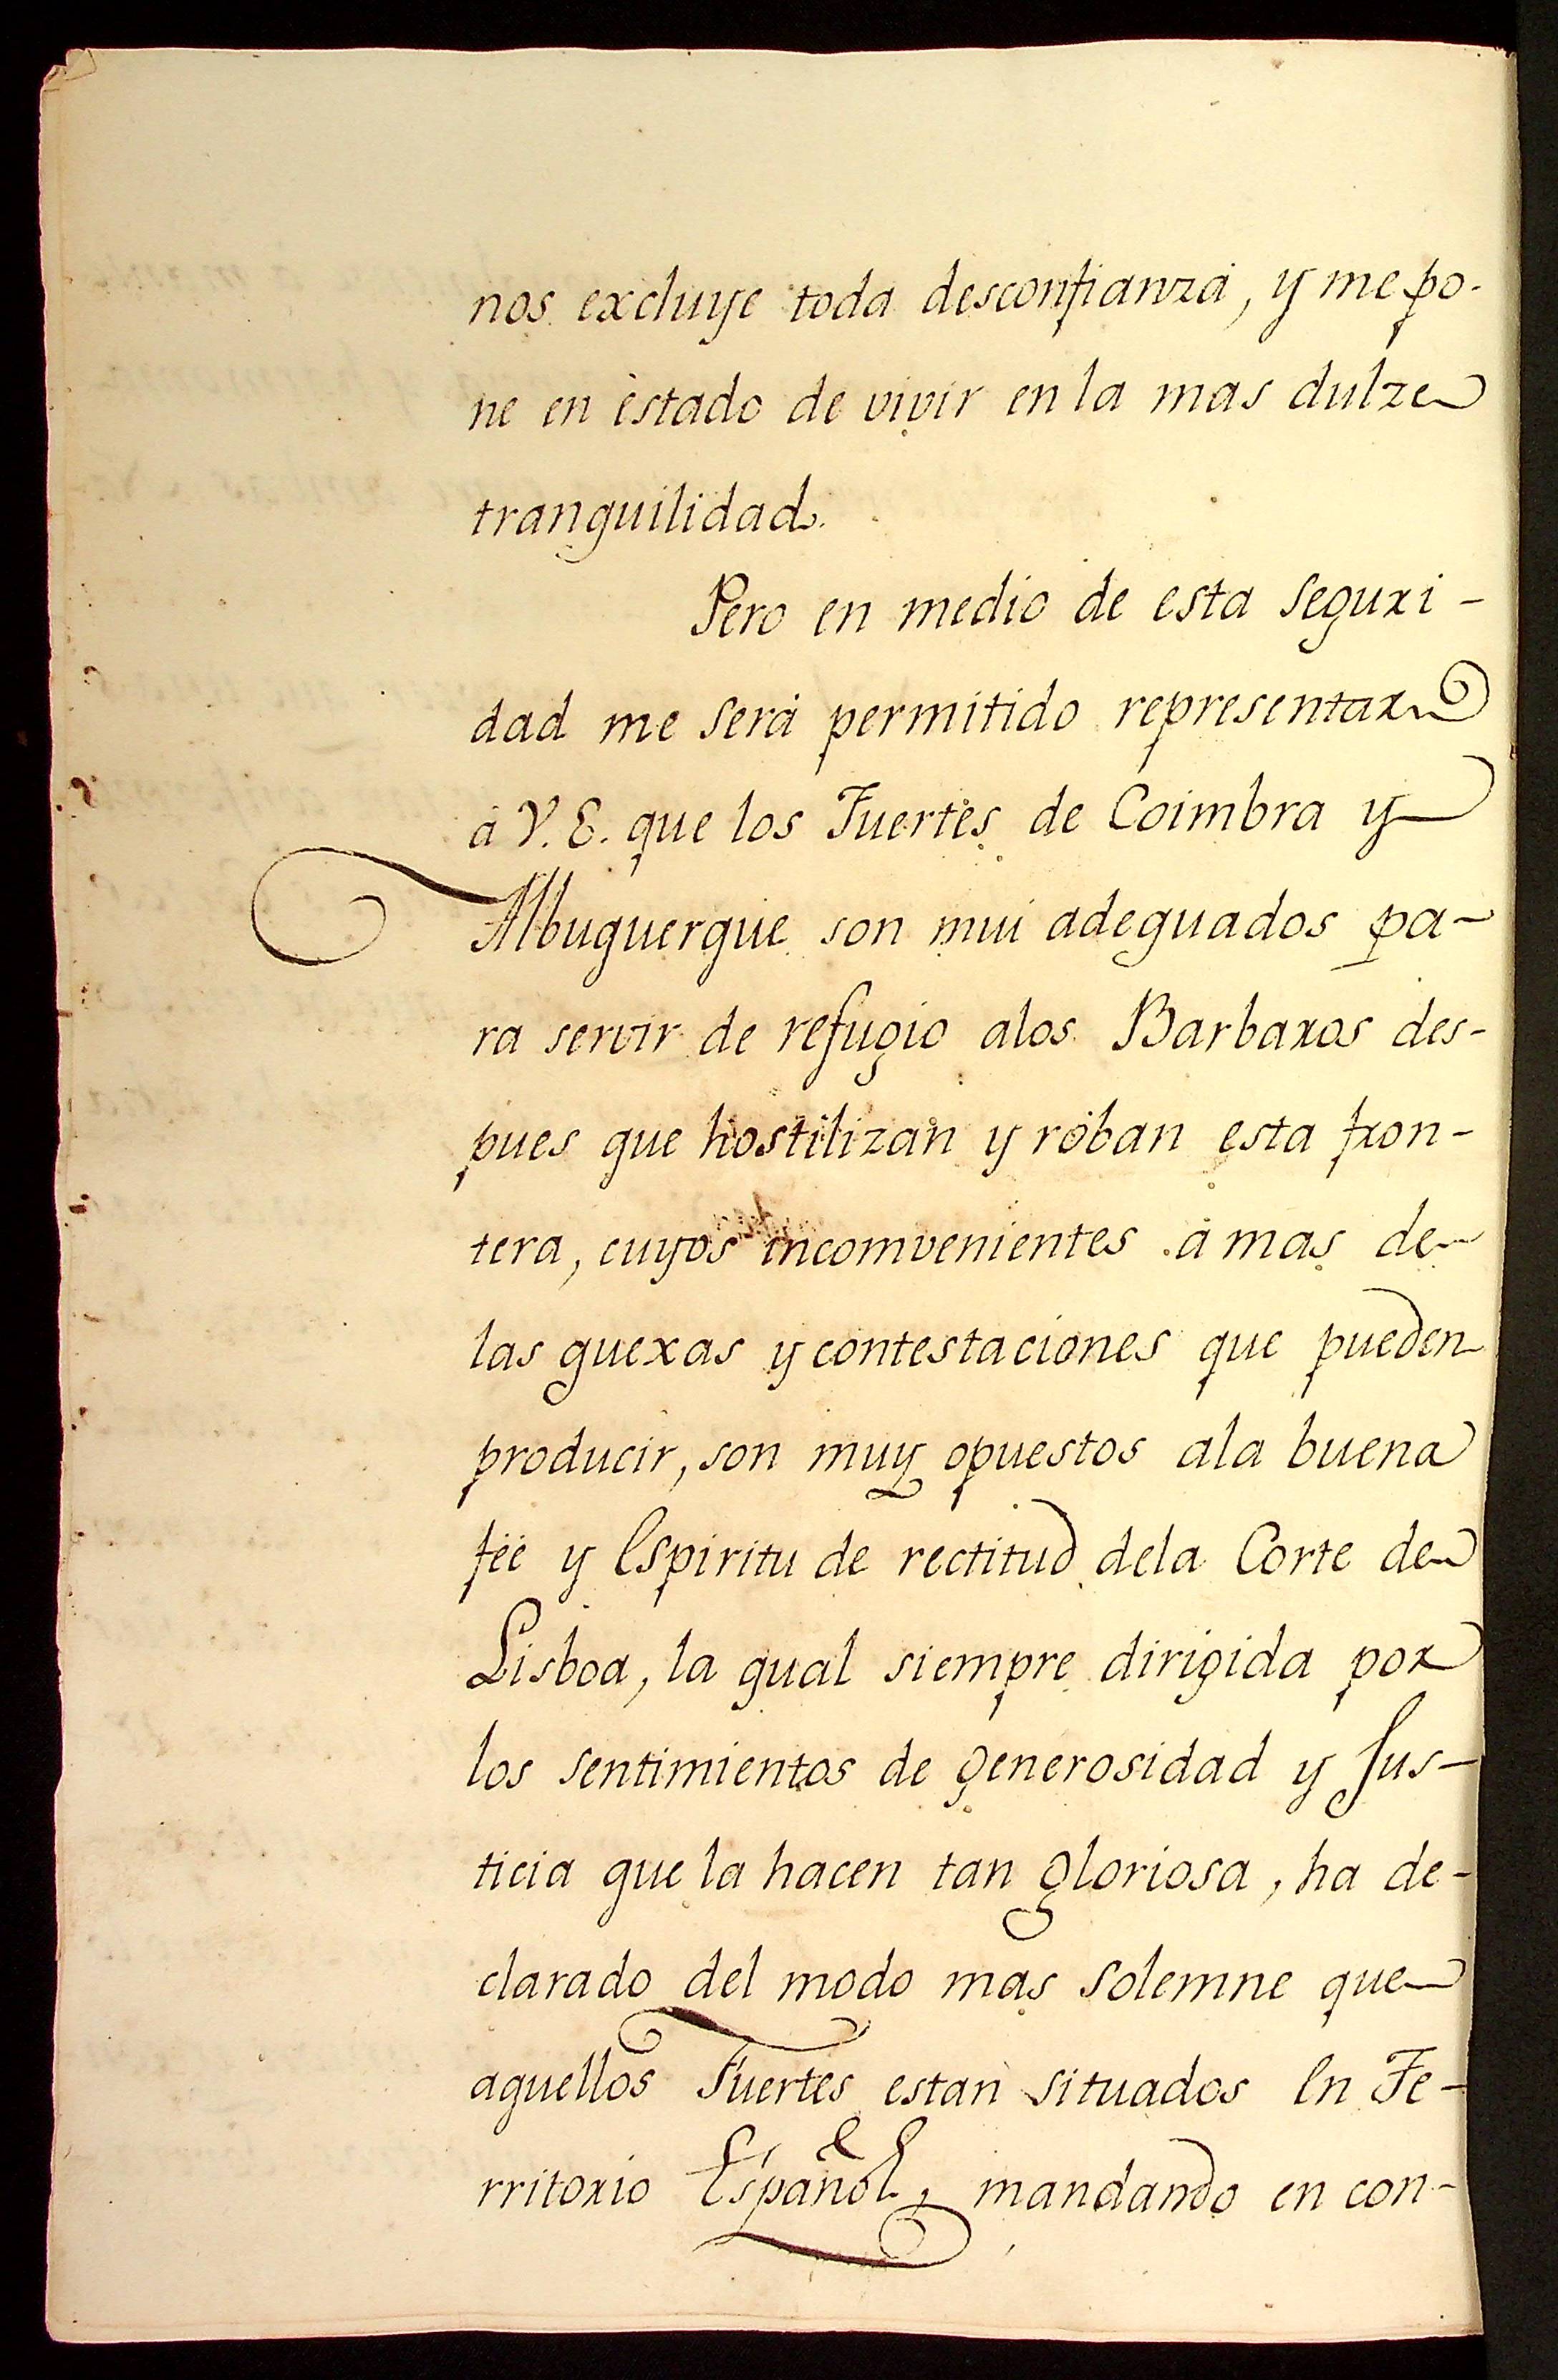 nos excluye toda desconfianza, y me po-
ne en èstado de vivir en la mas dulze
tranquilidad.
Pero en medio de esta seguri-
dad me será permitido representar
á V. E. que los Fuertes de Coimbra y
Albuquerque son mui adequados pa-
ra servir de refugio alos Barbaros des-
pues que hostilizan y róban esta fron-
tera, cuyos incomvenientes á mas de
las quexas y contestaciones que pueden
producir, son muy opuestos ala buena
féé y Espiritu de rectitud dela Corte de
Lisboa, la qual siempre dirigida por
los sentimientos de generosidad y Jus-
ticia que la hacen tan gloriosa, ha de-
clarado del modo mas solemne que
aquellos Fuertes estan situados En Te-
rritorio Español, mandando en con-